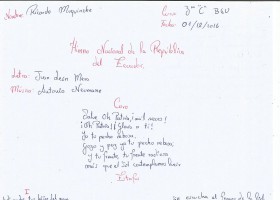 Nombre: Ricardo Moquinche
Curso: 3ro "C" BGU
Fecha: 01/12/2016
Himno Nacional de la República
del Ecuador.
Letra: Juan León Mera
Música: Antonio Neumane
Coro
Salve Oh Patria, ¡mil veces!
¡Oh Patria! ¡Gloria a ti!
Ya tu pecho rebosa,
Gozo y paz ya tu pecho rebosa,
y tu frente radiosa
más que el sol contemplamos lucir
Estrofa
I